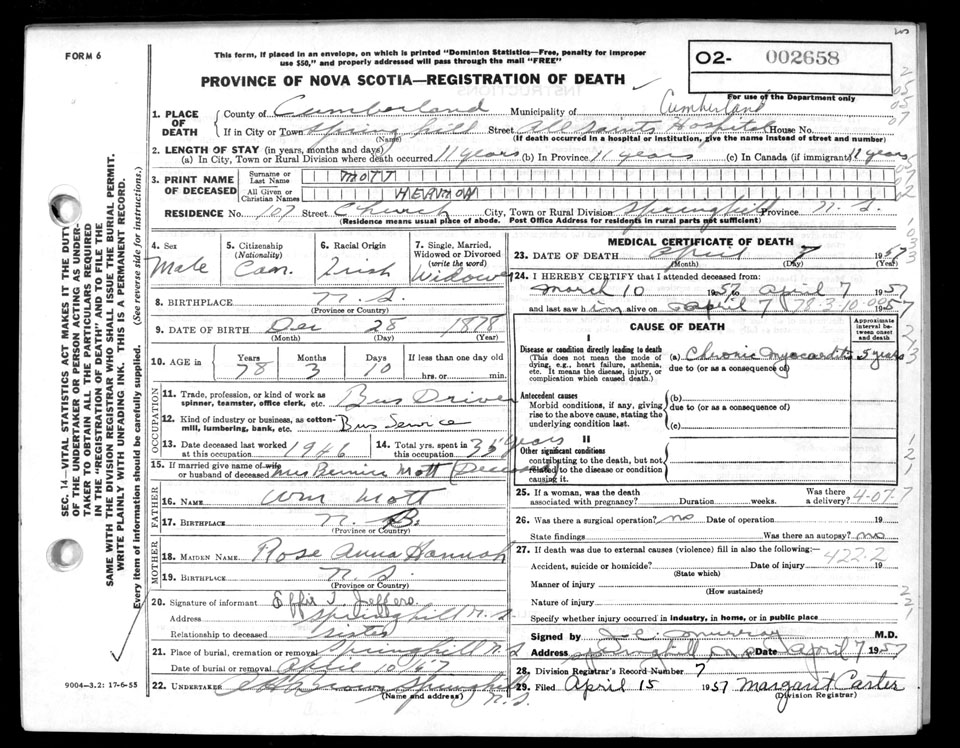 FORM 6
This form, if placed in an envelope, on which is printed "Dominion Statistics—Free, penalty for improper
use $50," and properly addressed will pass through the mail "FREE"
PROVINCE OF NOVA SCOTIA—REGISTRATION OF DEATH
02- 002658
For use of the Department only
SEC. 14—VITAL STATISTICS ACT MAKES IT THE DUTY
OF THE UNDERTAKER OR PERSON ACTING AS UNDER-
TAKER TO OBTAIN ALL THE PARTICULARS REQUIRED
IN THE "REGISTRATION OF DEATH" AND TO FILE THE
SAME WITH THE DIVISION REGISTRAR WHO SHALL ISSUE THE BURIAL PERMIT.
WRITE PLAINLY WITH UNFADING INK. THIS IS A PERMANENT RECORD.
Every item of information should be carefully supplied. (See reverse side for instructions.)
1. PLACE OF DEATH
County of Cumberland Municipality of Cumberland
If in City or Town Spring hill Street All Saints Hospital House No.
(Name) (If death occurred in a hospital or institution, give the name instead of street and number)
2. LENGTH OF STAY (in years, months and days)
(a) In City, Town or Rural Division where death occurred 11 years (b) In Province 11 years (c) In Canada (if immigrant) 11 years
3. PRINT NAME OF DECEASED
Surname or Last Name MOTT
All Given or Christian Names HERMON
RESIDENCE No. 107 Street Church City, Town or Rural Division Springhill Province N.S.
(Residence means usual place of abode. Post Office Address for residents in rural parts not sufficient)
4. Sex Male
5. Citizenship (Nationality) Can.
6. Racial Origin Irish
7. Single, Married, Widowed or Divorced (write the word) Widower
8. BIRTHPLACE N.S.
(Province or Country)
9. DATE OF BIRTH Dec 28 1878
(Month) (Day) (Year)
10. AGE in Years 78 Months 3 Days 10 If less than one day old
hrs. or min.
OCCUPATION
11. Trade, profession, or kind of work as spinner, teamster, office clerk, etc. Bus Driver
12. Kind of industry or business, as cotton-mill, lumbering, bank, etc. Bus Service
13. Date deceased last worked at this occupation 1946
14. Total yrs. spent in this occupation 35 years
15. If married give name of wife or husband of deceased Mrs Bernice Mott (Deceased)
FATHER
16. NAME Wm Mott
17. BIRTHPLACE N. B.
(Province or Country)
MOTHER
18. MAIDEN NAME Rose Anna Hannah
19. BIRTHPLACE N.S.
(Province or Country)
20. Signature of informant Effie J. Jeffers
Address Springhill N.S.
Relationship to deceased sister
21. Place of burial, cremation or removal Springhill N.S.
Date of burial or removal April 10 57
22. UNDERTAKER Brown Springhill N.S.
(Name and address)
9004—3.2: 17-6-55
MEDICAL CERTIFICATE OF DEATH
23. DATE OF DEATH April 7 1957
(Month) (Day) (Year)
24. I HEREBY CERTIFY that I attended deceased from
March 10 1957 to April 7 1957
and last saw him alive on April 7 1957
78-3-10-00
CAUSE OF DEATH
Approximate interval between onset and death
I
Disease or condition directly leading to death
(This does not mean the mode of dying, e.g., heart failure, asthenia, etc. It means the disease, injury, or complication which caused death.)
(a) Chronic Myocarditis 5 years
due to (or as a consequence of)
Antecedent causes
Morbid conditions, if any, giving rise to the above cause, stating the underlying condition last.
(b)
due to (or as a consequence of)
(c)
II
Other significant conditions
contributing to the death, but not related to the disease or condition causing it.
25. If a woman, was the death associated with pregnancy? Duration weeks. Was there a delivery?
4-07-7
26. Was there a surgical operation? no Date of operation 19
State findings Was there an autopsy? no
27. If death was due to external causes (violence) fill in also the following:—
422.2
Accident, suicide or homicide? Date of injury 19
(State which)
Manner of injury
(How sustained)
Nature of injury
Specify whether injury occurred in industry, in home, or in public place
Signed by J. C. Murray M.D.
Address Springhill N.S. Date April 7 1957
28. Division Registrar's Record Number 7
29. Filed April 15 1957 Margaret Carter
(Division Registrar)